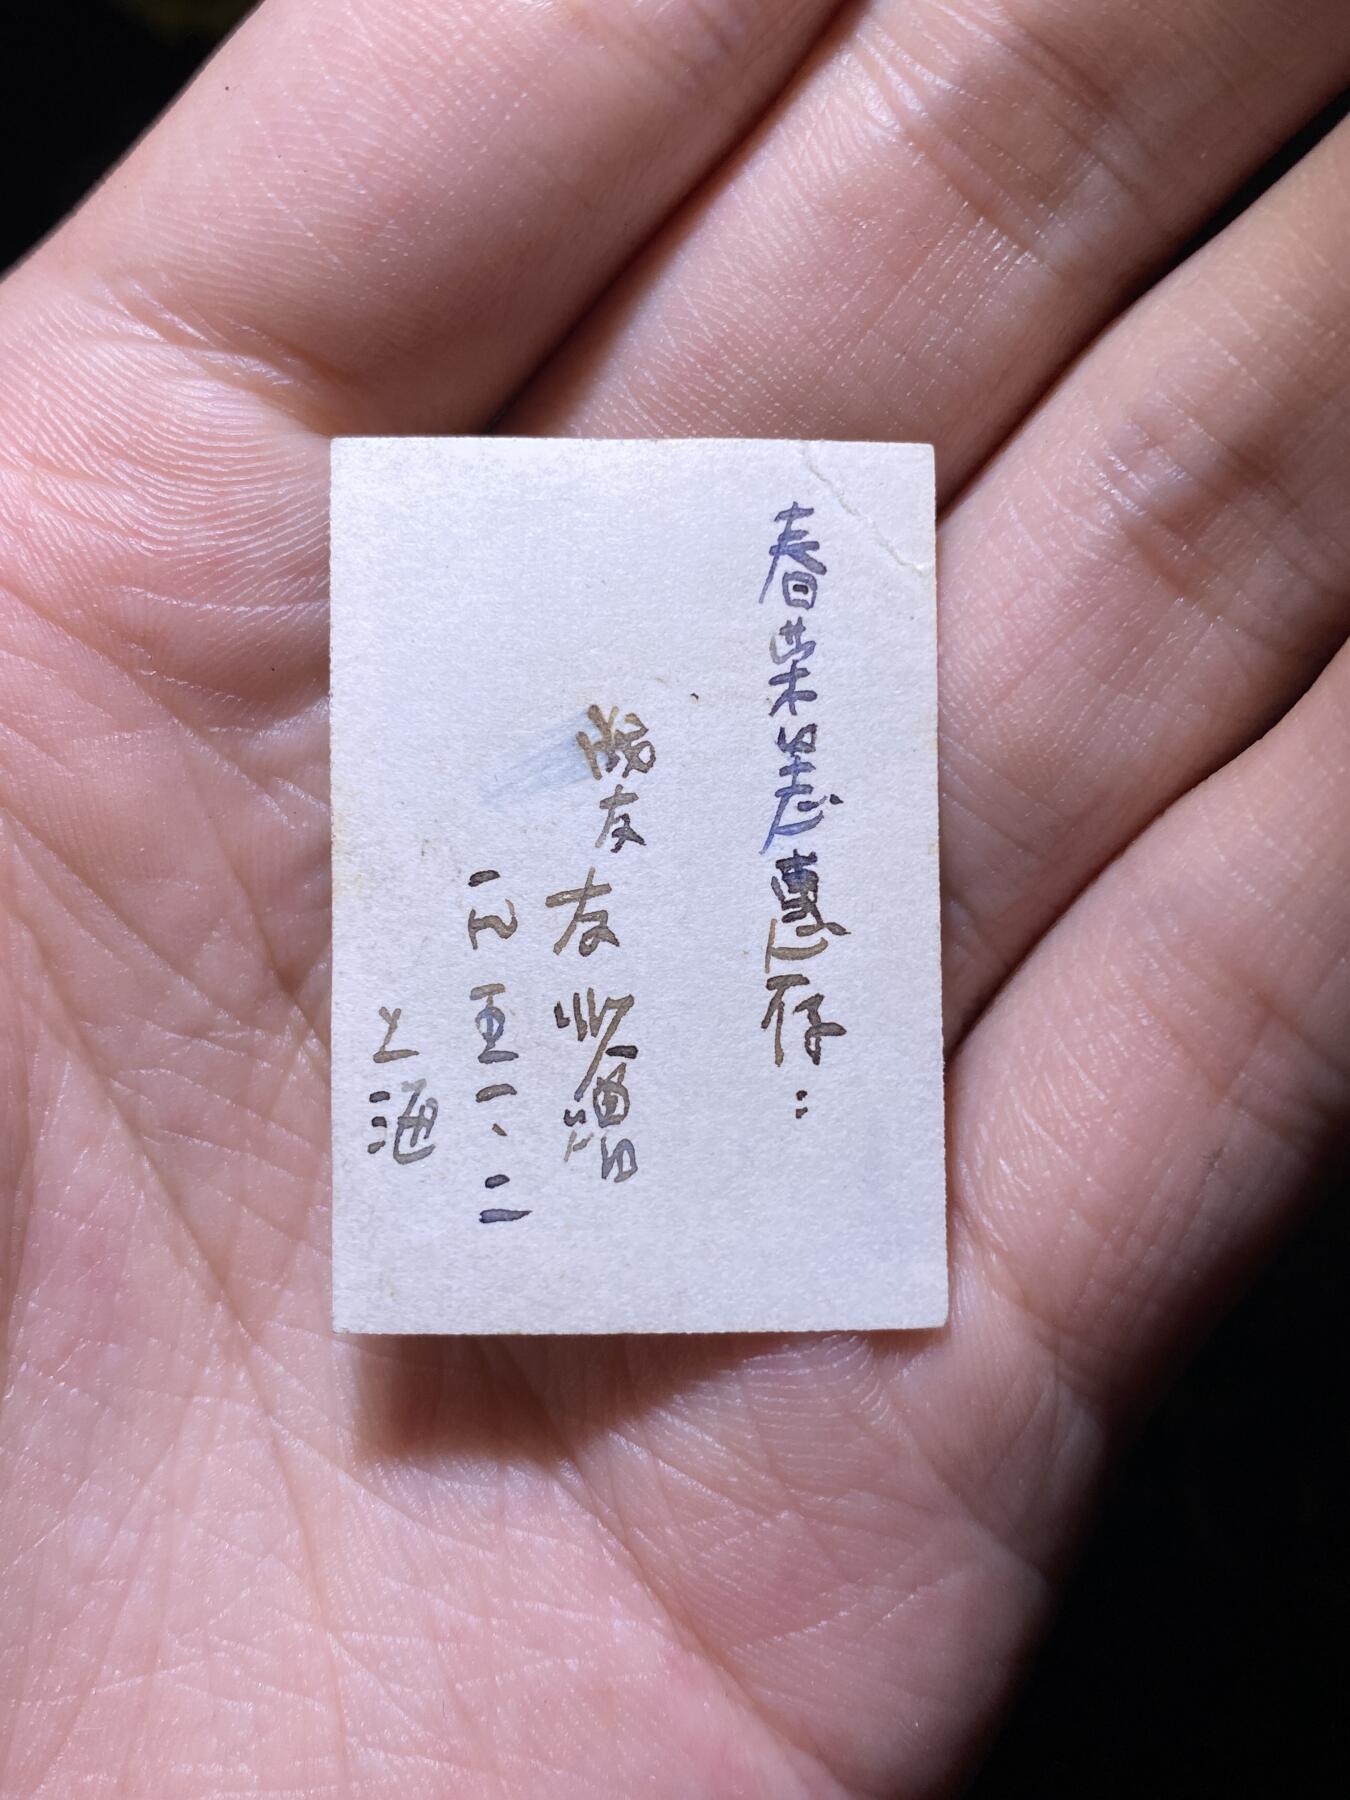 春荣同志惠存：
学友
友
赠
一九五一、二
上海